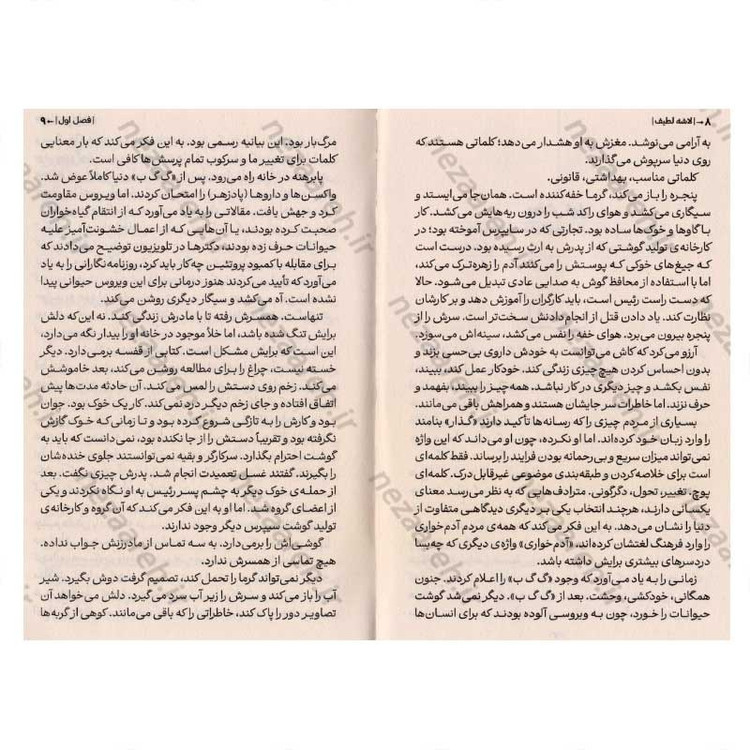 ۸ → | لاشه لطیف |
به آرامی می‌نوشد. مغزش به او هشدار می‌دهد؛ کلماتی هستند که
روی دنیا سرپوش می‌گذارند.
کلماتی مناسب، بهداشتی، قانونی.
پنجره را باز می‌کند، گرما خفه‌کننده است. همان‌جا می‌ایستد و
سیگاری می‌کشد و هوای راکد شب را درون ریه‌هایش می‌کشد. کار
با گاوها و خوک‌ها ساده بود. تجارتی که در سایپرس آموخته بود؛ در
کارخانه‌ی تولید گوشتی که از پدرش به ارث رسیده بود. درست است
که جیغ‌های خوکی که پوستش را می‌کنند آدم را زهره‌ترک می‌کند،
اما با استفاده از محافظ گوش به صدایی عادی تبدیل می‌شود. حالا
که دست راست رئیس است، باید کارگران را آموزش دهد و بر کارشان
نظارت کند. یاد دادن قتل از انجام‌دادنش سخت‌تر است. سرش را از
پنجره بیرون می‌برد. هوای خفه را نفس می‌کشد، سینه‌اش می‌سوزد.
آرزو می‌کرد که کاش می‌توانست به خودش داروی بی‌حسی بزند و
بدون احساس کردن هیچ چیزی زندگی کند. خودکار عمل کند، ببیند،
نفس بکشد و چیز دیگری در کار نباشد. همه‌چیز را ببیند، بفهمد و
حرف نزند. اما خاطرات سر جایشان هستند و همراهش باقی می‌مانند.
بسیاری از مردم چیزی را که رسانه‌ها تأکید دارند «گذار» بنامند
را وارد زبان خود کرده‌اند. اما او نکرده، چون او می‌داند که این واژه
نمی‌تواند میزان سریع و بی‌رحمانه بودن فرایند را برساند. فقط کلمه‌ای
است برای خلاصه‌کردن و طبقه‌بندی موضوعی غیرقابل درک. کلمه‌ای
پوچ. تغییر، تحول، دگرگونی. مترادف‌هایی که به نظر می‌رسد معنای
یکسانی دارند، هرچند انتخاب یکی بر دیگری دیدگاهی متفاوت از
دنیا را نشان می‌دهد. به این فکر می‌کند که همه‌ی مردم آدم‌خواری
را وارد فرهنگ لغتشان کرده‌اند. «آدم‌خواری» واژه‌ی دیگری که چه‌بسا
دردسرهای بیشتری برایش داشته باشد.
زمانی را به یاد می‌آورد که وجود «گ گ ب» را اعلام کردند. جنون
همگانی، خودکشی، وحشت. بعد از «گ گ ب». دیگر نمی‌شد گوشت
حیوانات را خورد، چون به ویروسی آلوده بودند که برای انسان‌ها
| فصل اول | ← ۹
مرگ‌بار بود. این بیانیه رسمی بود. به این فکر می‌کند که بار معنایی
کلمات برای تغییر ما و سرکوب تمام پرسش‌ها کافی است.
پابرهنه در خانه راه می‌رود. پس از «گ گ ب» دنیا کاملاً عوض شد.
واکسن‌ها و داروها (پادزهر) را امتحان کردند. اما ویروس مقاومت
کرد و جهش یافت. مقالاتی را به یاد می‌آورد که از انتقام گیاه‌خواران
صحبت کرده بودند، یا آن‌هایی که از اعمال خشونت‌آمیز علیه
حیوانات حرف زده بودند، دکترها در تلویزیون توضیح می‌دادند که
برای مقابله با کمبود پروتئین چه‌کار باید کرد، روزنامه‌نگارانی را به یاد
می‌آورد که تأیید می‌کردند هنوز درمانی برای این ویروس حیوانی پیدا
نشده است. آه می‌کشد و سیگار دیگری روشن می‌کند.
تنهاست. همسرش رفته تا با مادرش زندگی کند. نه این که دلش
برایش تنگ شده باشد، اما خلأ موجود در خانه او را بیدار نگه می‌دارد،
این است که برایش مشکل است. کتابی از قفسه برمی‌دارد. دیگر
خسته نیست، چراغ را برای مطالعه روشن می‌کند، بعد خاموشش
می‌کند. زخم روی دستش را لمس می‌کند. آن حادثه مدت‌ها پیش
اتفاق افتاده و جای زخم دیگر درد نمی‌کند. کار یک خوک بود. جوان
بود و کارش را به تازگی شروع کرده بود و تا زمانی‌که خوک گازش
نگرفته بود و تقریباً دستش را از جا نکنده بود، نمی‌دانست که باید به
گوشت احترام بگذارد. سرکارگر و بقیه نمی‌توانستند جلوی خنده‌شان
را بگیرند. گفتند غسل تعمیدت انجام شد. پدرش چیزی نگفت. بعد
از حمله‌ی خوک دیگر به چشم پسر رئیس به او نگاه نکردند و یکی
از اعضای گروه شد. اما او به این فکر می‌کند که آن گروه و کارخانه‌ی
تولید گوشت سیپرس دیگر وجود ندارند.
گوشی‌اش را برمی‌دارد. به سه تماس از مادرزنش جواب نداده.
هیچ تماسی از همسرش ندارد.
دیگر نمی‌تواند گرما را تحمل کند، تصمیم گرفت دوش بگیرد. شیر
آب را باز می‌کند و سرش را زیر آب سرد می‌گیرد. دلش می‌خواهد آن
تصاویر دور را پاک کند، خاطراتی را که باقی می‌مانند. کوهی از گربه‌ها
nezaafeh.ir